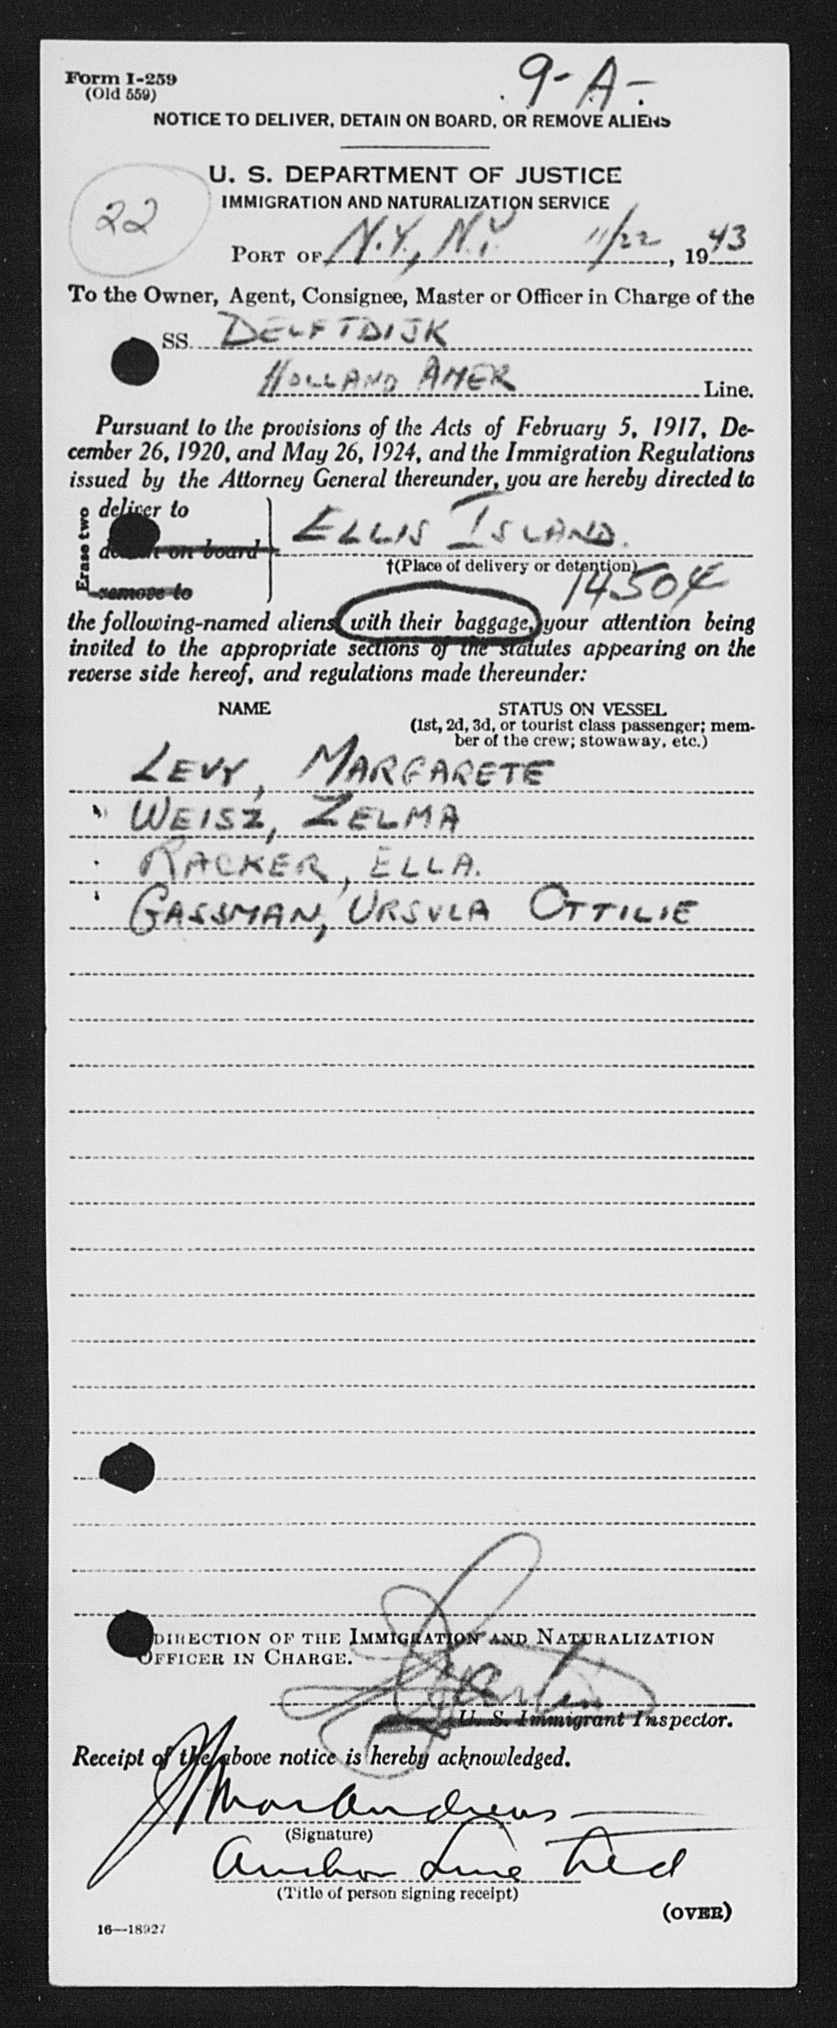 Form I-259
(Old 559)
9-A-
NOTICE TO DELIVER, DETAIN ON BOARD, OR REMOVE ALIENS
U. S. DEPARTMENT OF JUSTICE
IMMIGRATION AND NATURALIZATION SERVICE
22
PORT OF N.Y., N.Y. 11/22, 1943
To the Owner, Agent, Consignee, Master or Officer in Charge of the
SS. DELFTDIJK
HOLLAND AMER Line.
Pursuant to the provisions of the Acts of February 5, 1917, De-
cember 26, 1920, and May 26, 1924, and the Immigration Regulations
issued by the Attorney General thereunder, you are hereby directed to
Erase two
deliver to
detain on board
remove to
ELLIS ISLAND.
†(Place of delivery or detention)
14504
the following-named aliens with their baggage, your attention being
invited to the appropriate sections of the statutes appearing on the
reverse side hereof, and regulations made thereunder:
NAME
STATUS ON VESSEL
(1st, 2d, 3d, or tourist class passenger; mem-
ber of the crew; stowaway, etc.)
LEVY, MARGARETE
WEISZ, ZELMA
RACKER, ELLA.
GASSMAN, URSULA OTTILIE
DIRECTION OF THE IMMIGRATION AND NATURALIZATION
OFFICER IN CHARGE.
U. S. Immigrant Inspector.
Receipt of the above notice is hereby acknowledged.
(Signature)
Anchor Line Ltd
(Title of person signing receipt)
(OVER)
16—18927